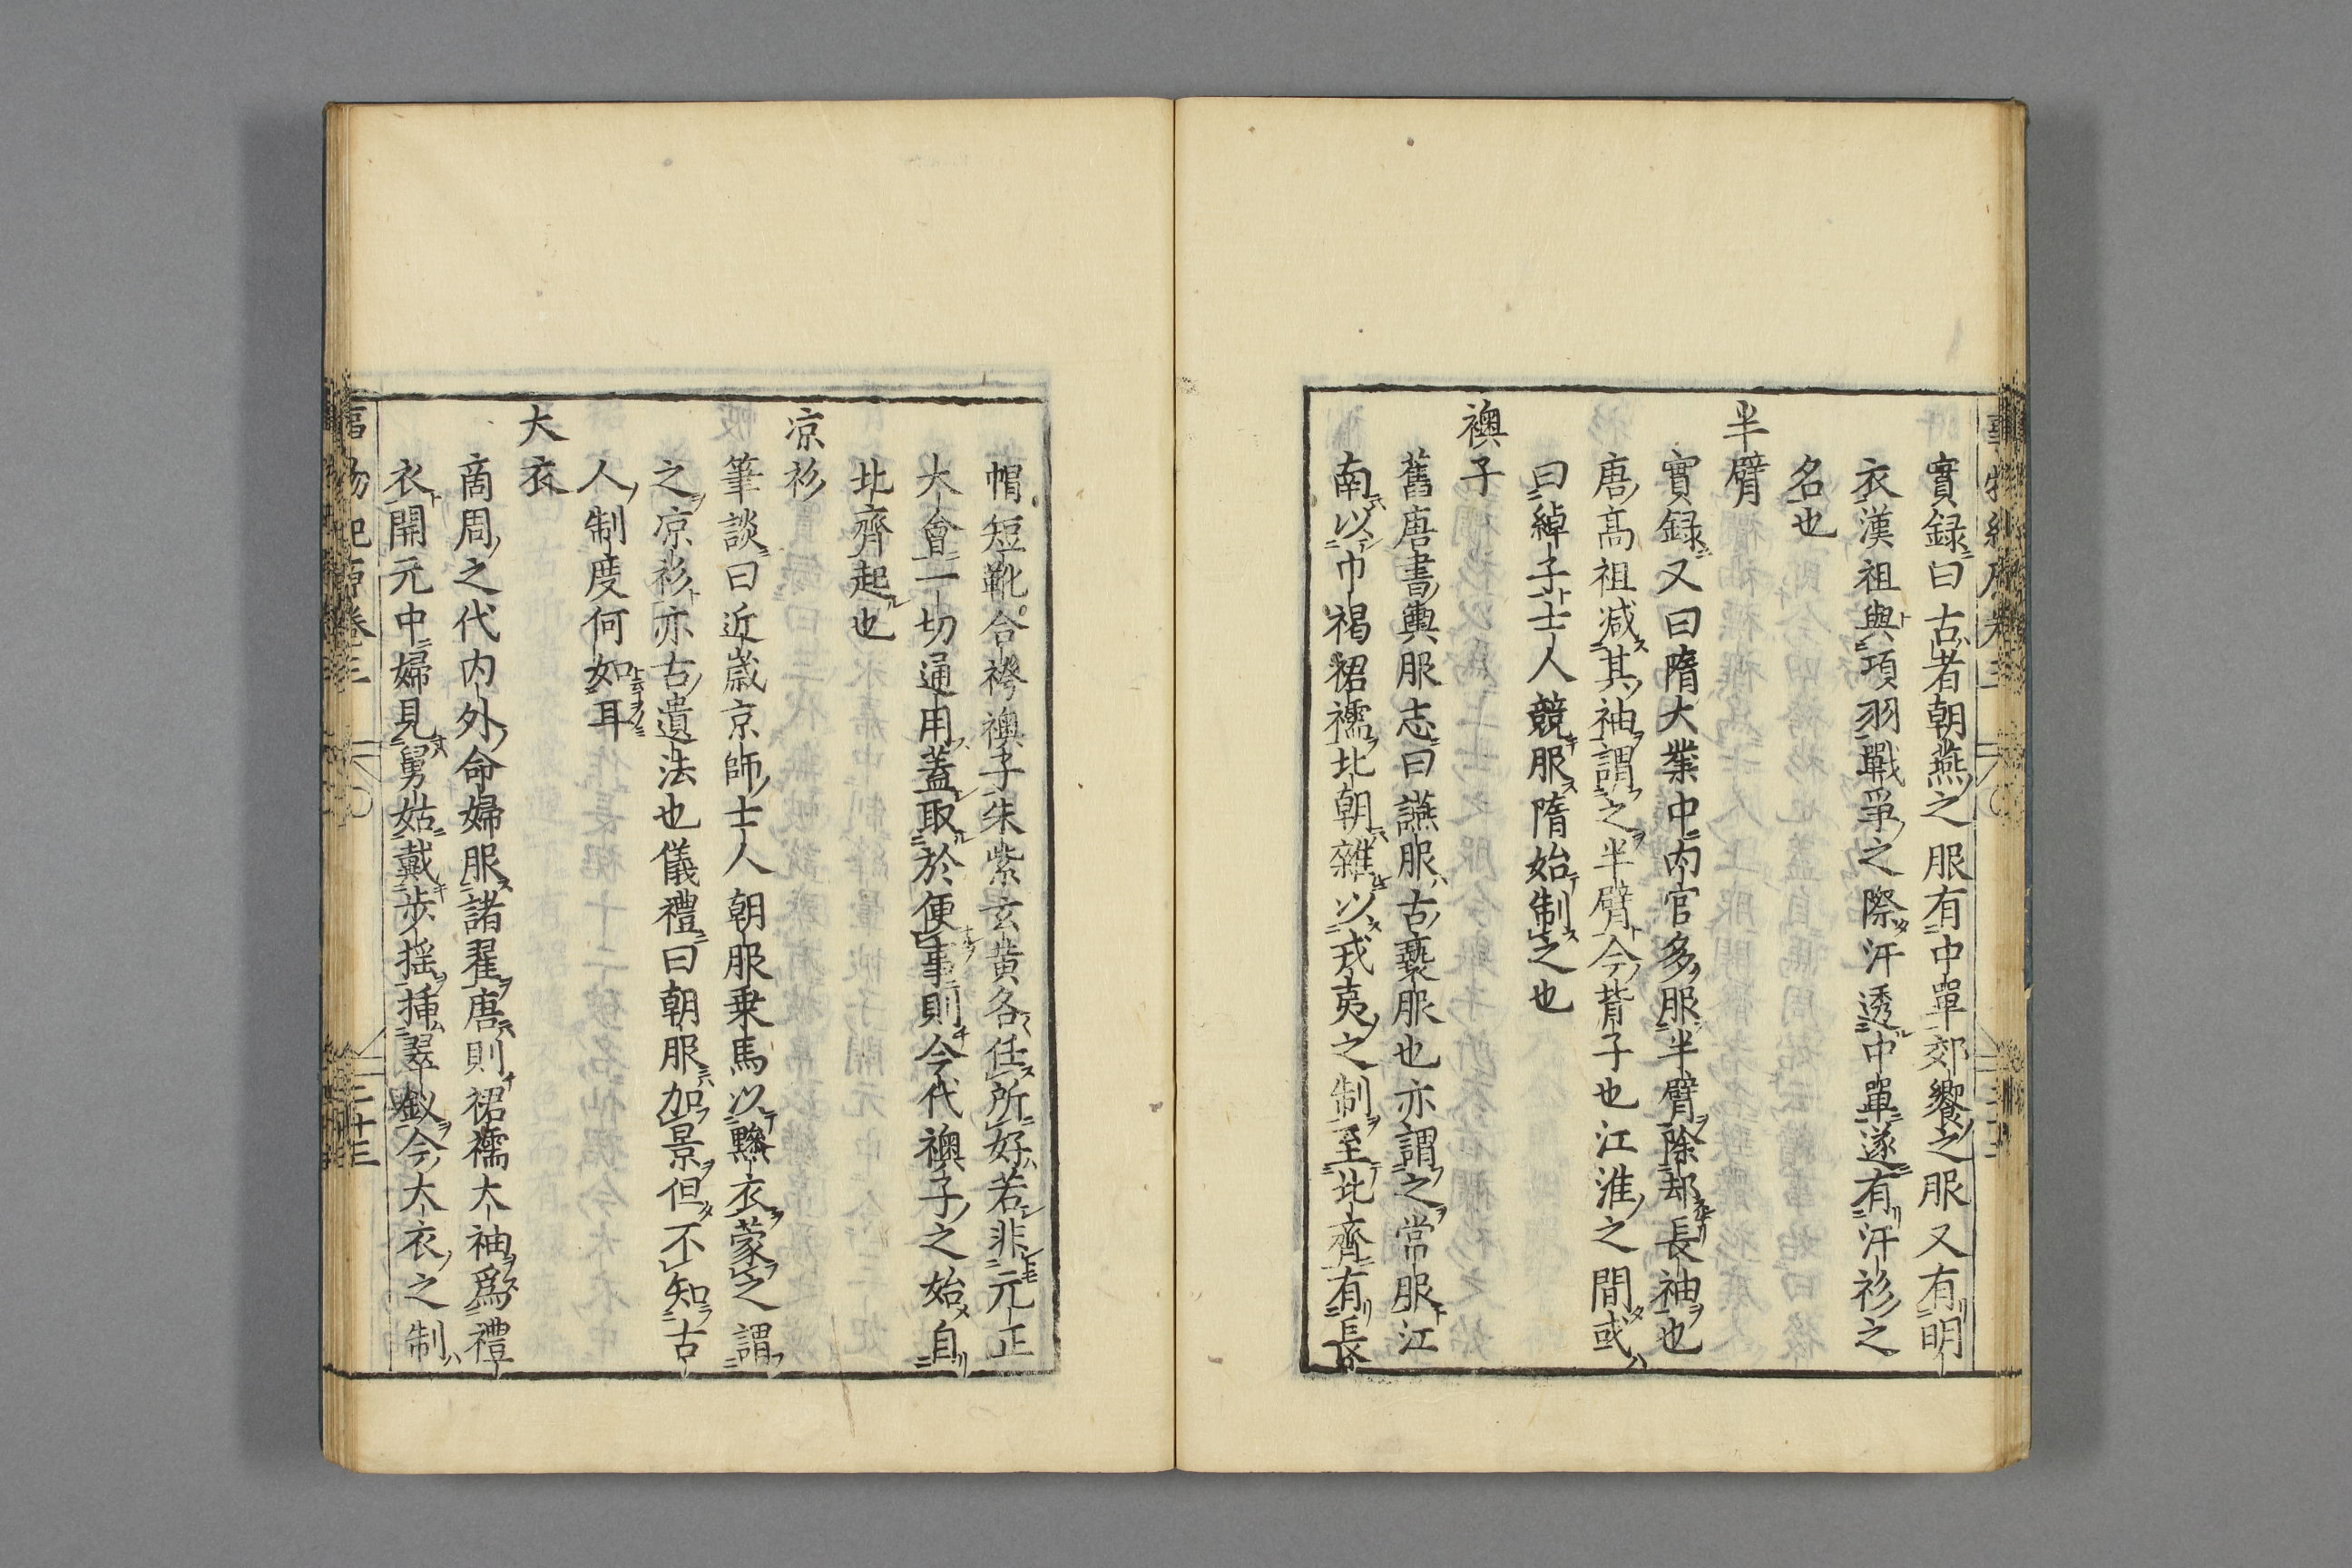 實録曰古者朝燕之服有中單郊饗之服又有明
衣漢祖與項羽戰爭之際汗透中單遂有汗衫之
名也
半臂
實録又曰隋大業中内官多服半臂除却長袖也
唐髙祖减其袖謂之半臂今背子也江淮之間或
曰綽子士人競服隋始制之也
襖子
舊唐書輿服志曰讌服古褻服也亦謂之常服江
南以巾褐裙襦北朝雜以戎夷之制至北齊有長
帽短靴合袴襖子朱紫玄黄各任所好若非元正
大會一切通用蓋取於便事則今代襖子之始自
北齊起也
凉衫
筆談曰近歳京師士人朝服乗馬以黲衣蒙之謂
之凉衫亦古遺法也儀禮曰朝服加景但不知古
人制度何如耳
大衣
啇周之代内外命婦服諸翟唐則裙襦大袖爲禮
衣開元中婦見舅姑戴步揺挿翠釵今大衣之制
二十三